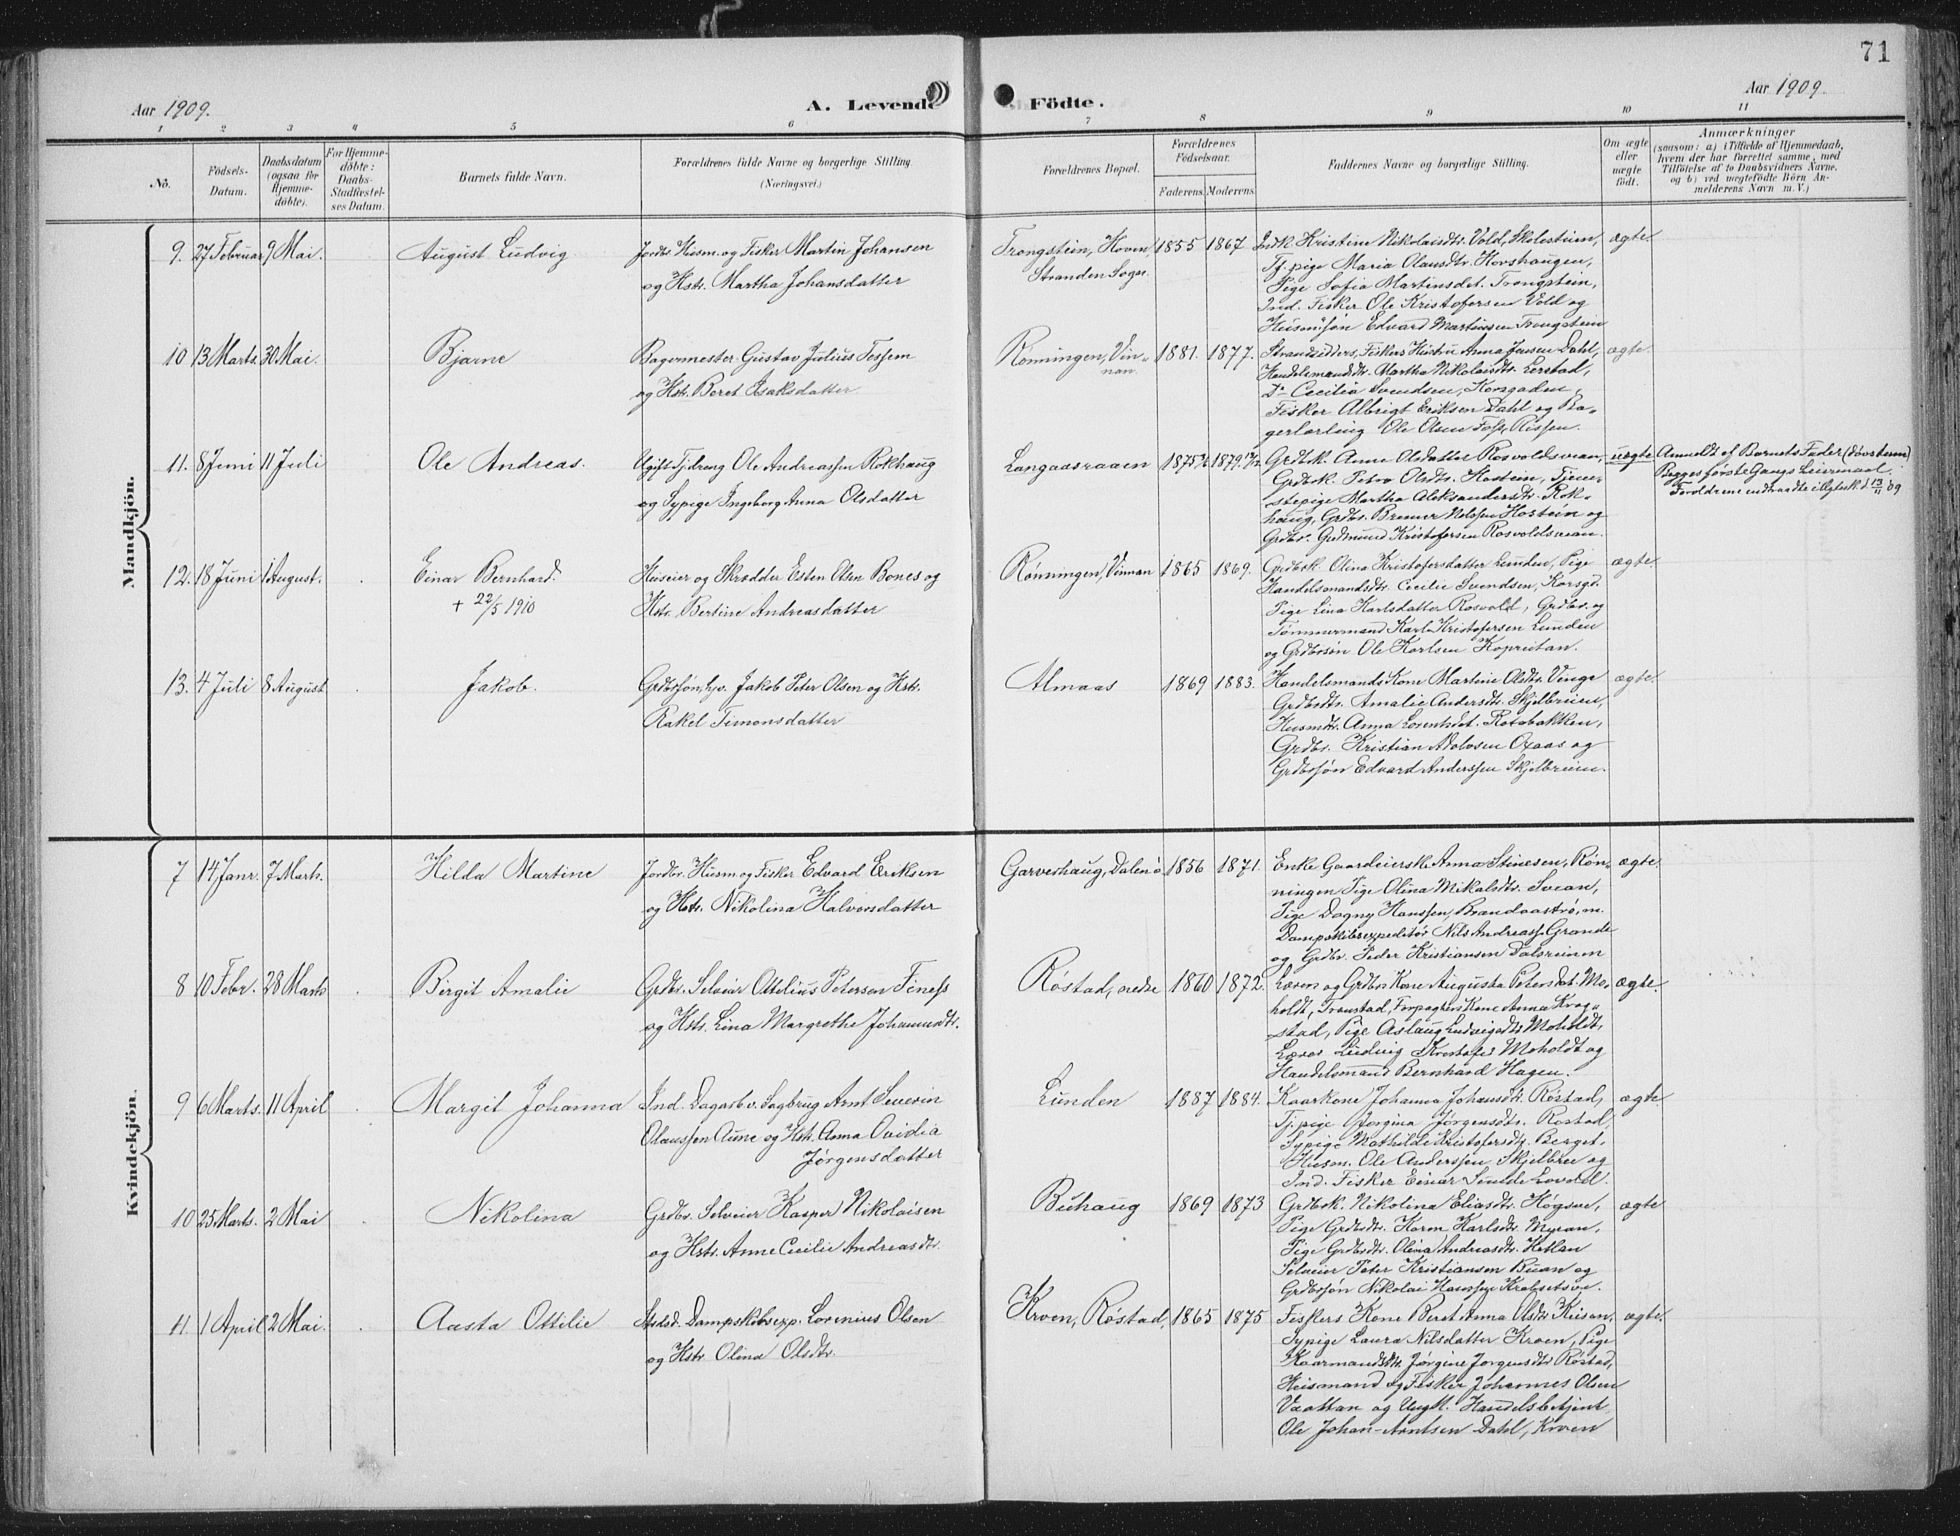 71
Aar 1909.
A. Levende Födte.
Aar 1909.
1 2 3 4 5 6 7 8 9 10 11
No.
Födsels-Datum.
Daabsdatum (ogsaa for Hjemme-döbte).
For Hjemme-döbte: Daabs-Stadfæstel-ses Datum.
Barnets fulde Navn.
Forældrenes fulde Navne og borgerlige Stilling.
(Næringsvei.)
Forældrenes Bopæl.
Forældrenes Födselsaar.
Faderens. Moderens.
Faddernes Navne og borgerlige Stilling.
Om ægte eller uægte födt.
Anmærkninger
(saasom: a) i Tilfælde af Hjemmedaab, hvem der har forrettet samme, med Tilföielse af to Daabsvidners Navne, og b) ved uægtefödte Börn An-melderens Navn m. V.)
Mandkjön.
9. 27 Februar 9 Mai. August Ludvig
Jordbr. Husm. og Fisker Martin Johansen
og Hstr. Martha Johansdatter
Trongstein, Hoven
Stranden Sogn.
1855 1867
Indk. Kristine Nikolaisdtr. Vold, Skolestuen,
Tj. pige Maria Olausdtr. Hovshaugen,
Pige Sofia Martinsdet. Trongstein,
Ind. Fisker Ole Kristofersen Vold og
Husm.søn Edvard Martinssen Trongstein
ægte
10 13 Marts. 30 Mai. Bjarne
Bagermester Gustav Julius Tessem
og Hstr. Beret Isaksdatter
Rønningen, Vin-
nan.
1881. 1877.
Strandsidders, Fiskers Hustru Anna Jensen Dahl,
Handelsmandsdtr. Martha Nikolaisdtr. Lerstad,
Do Cecilia Svendsen, Korsgaden,
Fisker Albrigt Eriksen Dahl og Ba-
gerlærling Ole Olsen Foss, Rissen.
ægte.
11. 8 Juni 11 Juli Ole Andreas.
Ugift Tjdreng Ole Andreassen Rokhaug
og Sypige Ingeborg Anna Olsdatter
Langaasraaen
Grdbk. Anne Olsdatter Rosvoldsvean,
Grdbk. Petra Olsdtr. Hostein, Tjene-
stepige Martha Aleksandersdtr. Rok-
haug, Grdbr. Brenner Nilssen Hostein og
Grdbr. Gudmund Kristofersen Rosvoldsvean.
uægte
Anmeldt af Barnets Fader (døvstum)
Begges første Gangs Leiermaal.
Forældrene indtraadte i Ægtesk. d. 13/11 09
12. 18 Juni 1 August. Einar Bernhard.
+ 22/5 1910
Huseier og Skrædder Esten Olsen Bones og
Hstr. Bertine Andreasdatter
Rønningen, Vinnan
1865 1869.
Grdbk. Olina Kristofersdatter Lunden, Pige
Handelsmandsdtr. Cecilie Svendsen, Korsgd.
Pige Lina Karlsdatter Rosvold, Grdbr. og
Tømmermand Karl Kristofersen Lunden
og Grdbrsøn Ole Karlsen Kopreitan.
ægte.
13. 4 Juli 8 August Jakob.
Grdbrsøn, hjv. Jakob Peter Olsen og Hstr.
Rakel Timonsdatter
Almaas
1869 1883.
Handelsmands Kone Martine Olsdtr. Vinge
Grdbsdtr. Amalie Andersdtr. Skjelbreien,
Husmdtr. Anna Lorentsdet. Rotabakken,
Grdbr. Kristian Adolvsen Oxaas og
Grdbrsøn Edvard Anderssen Skjelbreien.
ægte.
Kvindekjön.
7 14 Janr. 7 Marts. Hilda Martine
Jordbr. Husm og Fisker Edvard Eriksen
og Hstr. Nikolina Halvorsdatter
Garverhaug, Dalenø
1856 1871.
Enke Gaardeiersk. Anna Stinesen, Røn-
ningen Pige Olina Mikalsdtr. Svean,
Pige Dagny Hanssen, Brandaastrø, m.
Dampskibsexpeditør Nils Andreass. Grande
og Grdbr. Peder Kristiansen Dalsreinen
ægte.
8 10 Febr. 28 Marts Birgit Amalie
Grdbr. Selveier Ottilius Peterson Finess
og Hstr. Lina Margrethe Johannesdtr.
Røstad, nedre
1860 1872.
Læren og Grdbrs Kone Augusta Petersdat. Mo-
holdt, Tronstad, Forpagters Kone Anna Krog-
stad, Pige Aslaug Ludvigsdtr Moholdt,
Lærer Ludvig Kristofer Moholdt og
Handelsmand Bernhard Hagen.
ægte.
9 6 Marts. 11 April Margit Johanna
Ind. Dagarb. v. Sagbrug Arnt Severin
Olaussen Aune og Hstr. Anna Ovidia
Jørgensdatter
Lunden
1887 1884.
Kaarkone Johanna Johansdtr. Røstad,
Tj. pige Jørgina Jørgensdtr. Røstad,
Sypige Mathilde Kristofersdtr. Berget,
Husm. Ole Anderssen Skjelbrei og
Ind. Fisker Einar
ægte
10 25 Marts. 2 Mai Nikolina
Grdbr. Selveier Kasper Nikolaisen
og Hstr. Anne Cecilie Andreasdtr.
Buhaug
1869 1873
Grdbk. Nikolina Eliasdtr. Høgsve,
Pige Grdbdtr. Karen Karlsdtr. Myran,
Pige Grdbsdtr. Olina Andreasdtr. Hetlan
Selveier Peter Kristiansen Buan og
Grdbrsøn Nikolai Hanssen
ægte
11. 1 April 2 Mai. Aasta Ottilie
Stdsd. Dampskibsexp. Lorenius Olsen
og Hstr Olina Olsdtr.
Kroen, Røstad,
1865 1875
Fiskers Kone Beret Anna Olsdtr
Sypige Laura Nilsdatter Kroen, Pige
Kaarmandsdtr Jørgine Jørgensdtr Røstad,
Husmand og Fisker Johannes Olsen
Vaattan og Ungk. Handelsbetjent
Ole Johan Arntsen Dahl, Kroen
ægte.